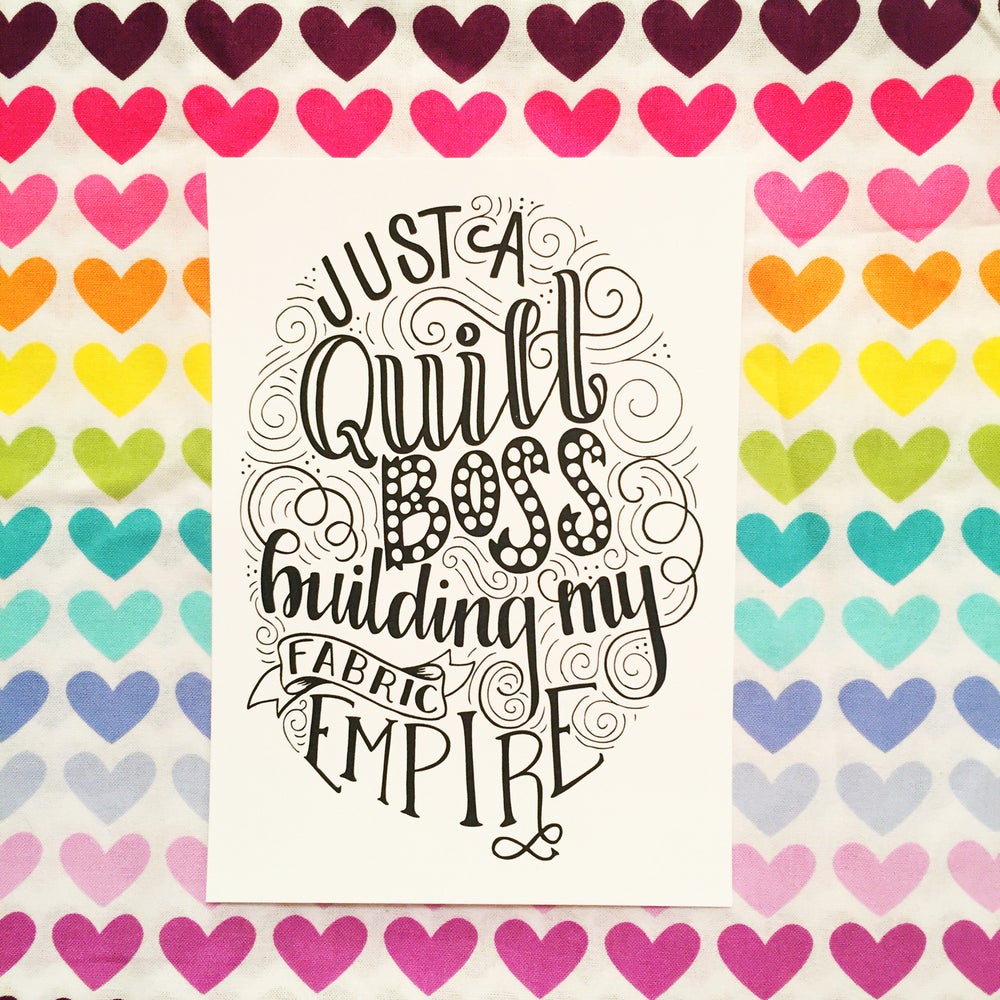 JUST A
Quilt
BOSS
building my
FABRIC
EMPIRE